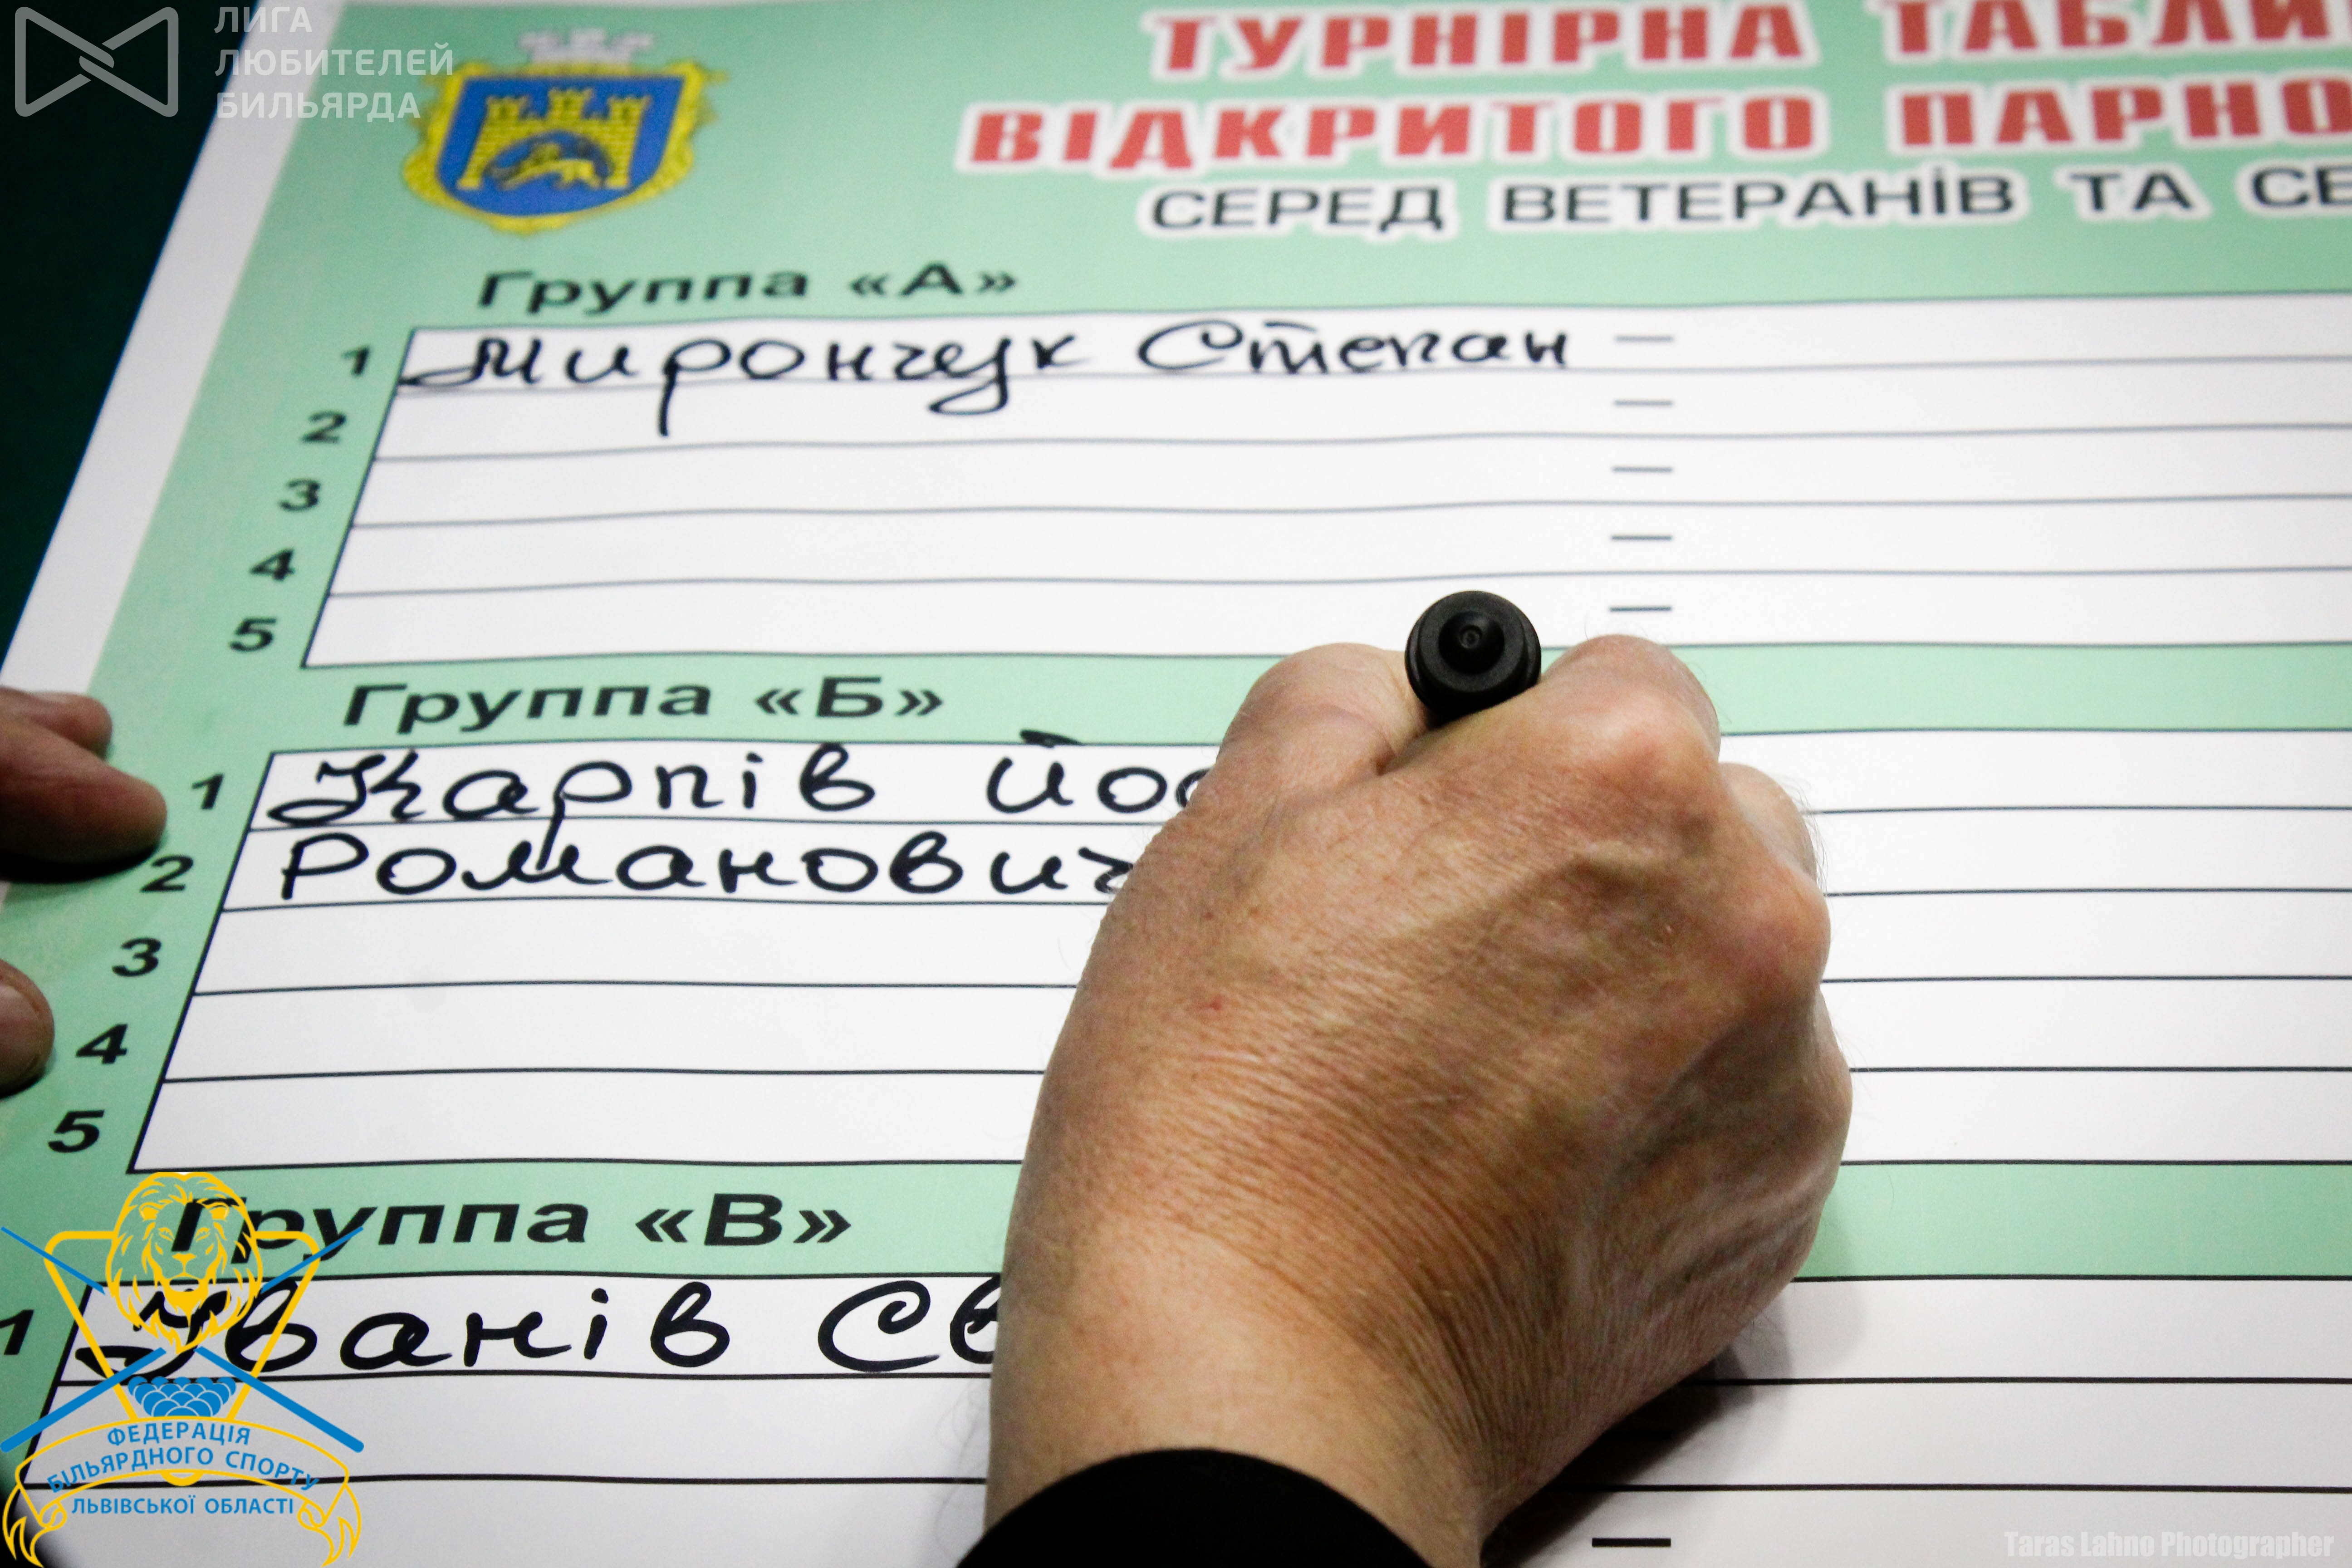 ЛИГА
ЛЮБИТЕЛЕЙ
БИЛЬЯРДА
ТУРНІРНА ТАБЛИ
ВІДКРИТОГО ПАРНО
СЕРЕД ВЕТЕРАНІВ ТА СЕ
Группа «А»
1 Мирончук Степан —
2 —
3 —
4 —
5 —
Группа «Б»
1 Карпів Йос
2 Романович
3
4
5
Группа «В»
1 Іванів Св
—
ФЕДЕРАЦІЯ
БІЛЬЯРДНОГО СПОРТУ
ЛЬВІВСЬКОЇ ОБЛАСТІ
Taras Lahno Photographer